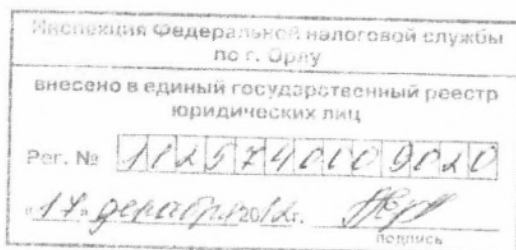 Инспекция Федеральной налоговой службы
по г. Орлу
внесено в единый государственный реестр
юридических лиц
Рег. № 1125740009020
«17» декабря 2012г.
подпись